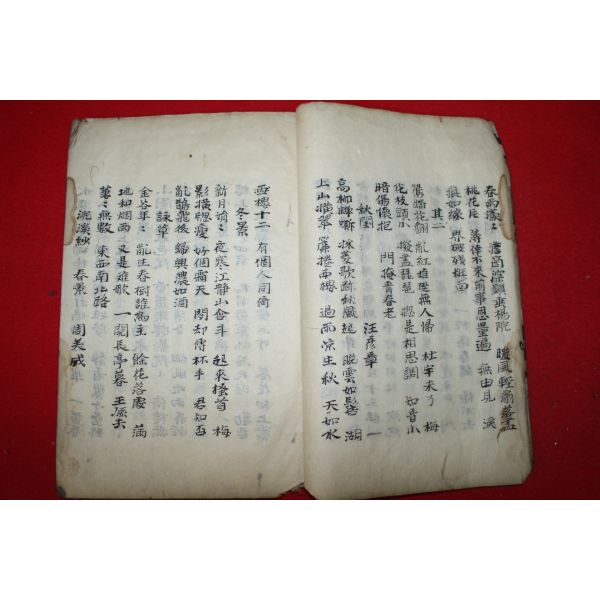 春雨濛々 澹深鎖垂楊院 暖風輕扇落盡
桃花片 薄倖不來前事思量遍 無由見 淚
痕如線 界破殘粧面
其二
鶯蹋花翻 亂紅堆逕無人掃 杜宇來了 梅
花枝頭小 撥盡琵琶 總是相思調 知音小
暗傷懷抱 門掩青春老
秋閨 汪彥章
高柳蟬嘶 採菱歌斷秋風起 晚雲如髻 湖
上山橫翠 簾捲西樓 過雨凉生秋 天如水
畫樓十二 有個人同倚
冬景
新月娟々 夜寒江靜山含斗 起來搔首 梅
影橫牕瘦 好個霜天 閑却傳杯手 君知否
亂鴉飛後 歸興濃如酒
詠草
金谷年々 亂生春樹誰爲主 餘花落處 滿
地和烟雨 又是難歌 一闋長亭暮 王孫去
萋々無數 東西南北路
浣溪紗 春景 周美成